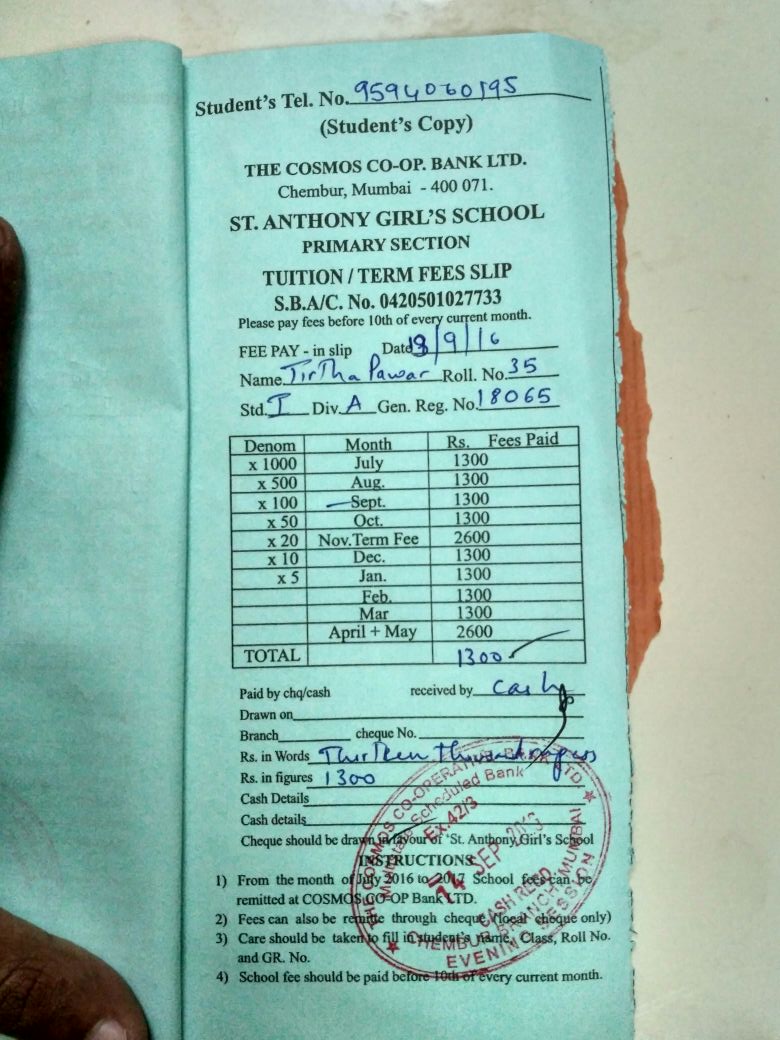 Student's Tel. No. 9594060195
(Student's Copy)
THE COSMOS CO-OP. BANK LTD.
Chembur, Mumbai - 400 071.
ST. ANTHONY GIRL'S SCHOOL
PRIMARY SECTION
TUITION / TERM FEES SLIP
S.B.A/C. No. 0420501027733
Please pay fees before 10th of every current month.
FEE PAY - in slip Date /9/16
Name Tirtha Pawar Roll. No. 35
Std. I Div. A Gen. Reg. No. 18065
Denom Month Rs. Fees Paid
x 1000 July 1300
x 500 Aug. 1300
x 100 Sept. 1300
x 50 Oct. 1300
x 20 Nov.Term Fee 2600
x 10 Dec. 1300
x 5 Jan. 1300
Feb. 1300
Mar 1300
April + May 2600
TOTAL 1300
Paid by chq/cash received by Cash
Drawn on
Branch cheque No.
Rs. in Words
Rs. in figures 1300
Cash Details
Cash details
Cheque should be drawn in favour of 'St. Anthony Girl's School
INSTRUCTIONS
1) From the month of July 2016 to 2017 School fees can be
remitted at COSMOS CO-OP Bank LTD.
2) Fees can also be remitte through cheque (local cheque only)
3) Care should be taken to fill in student's name, Class, Roll No.
and GR. No.
4) School fee should be paid before 10th of every current month.
THE COSMOS CO-OPERATIVE BANK LTD
Multistate Scheduled Bank
Ex.42/3
14 SEP
CASH RECD
CHEMBUR BRANCH, MUMBAI
EVENING SESSION